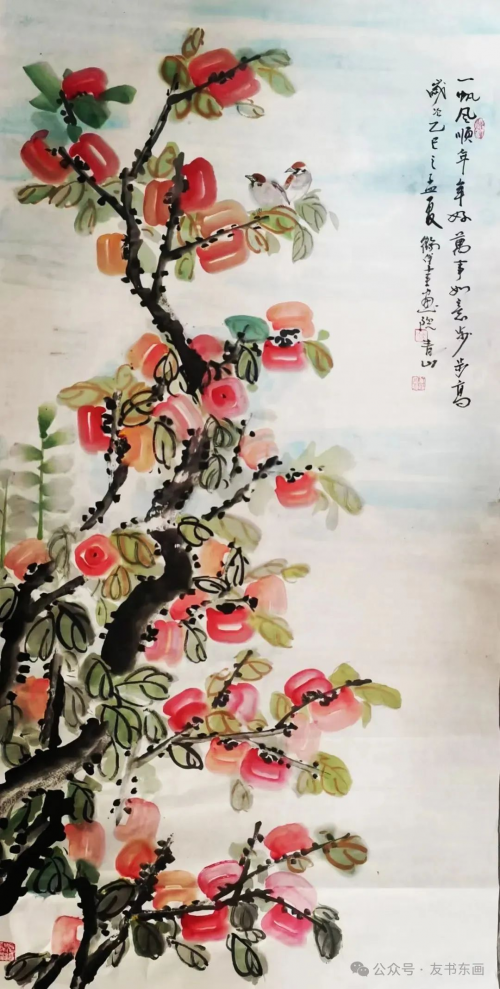 一帆风順年年好萬事如意步步高
歲次乙巳之孟夏画院青山
公众号·友书东画